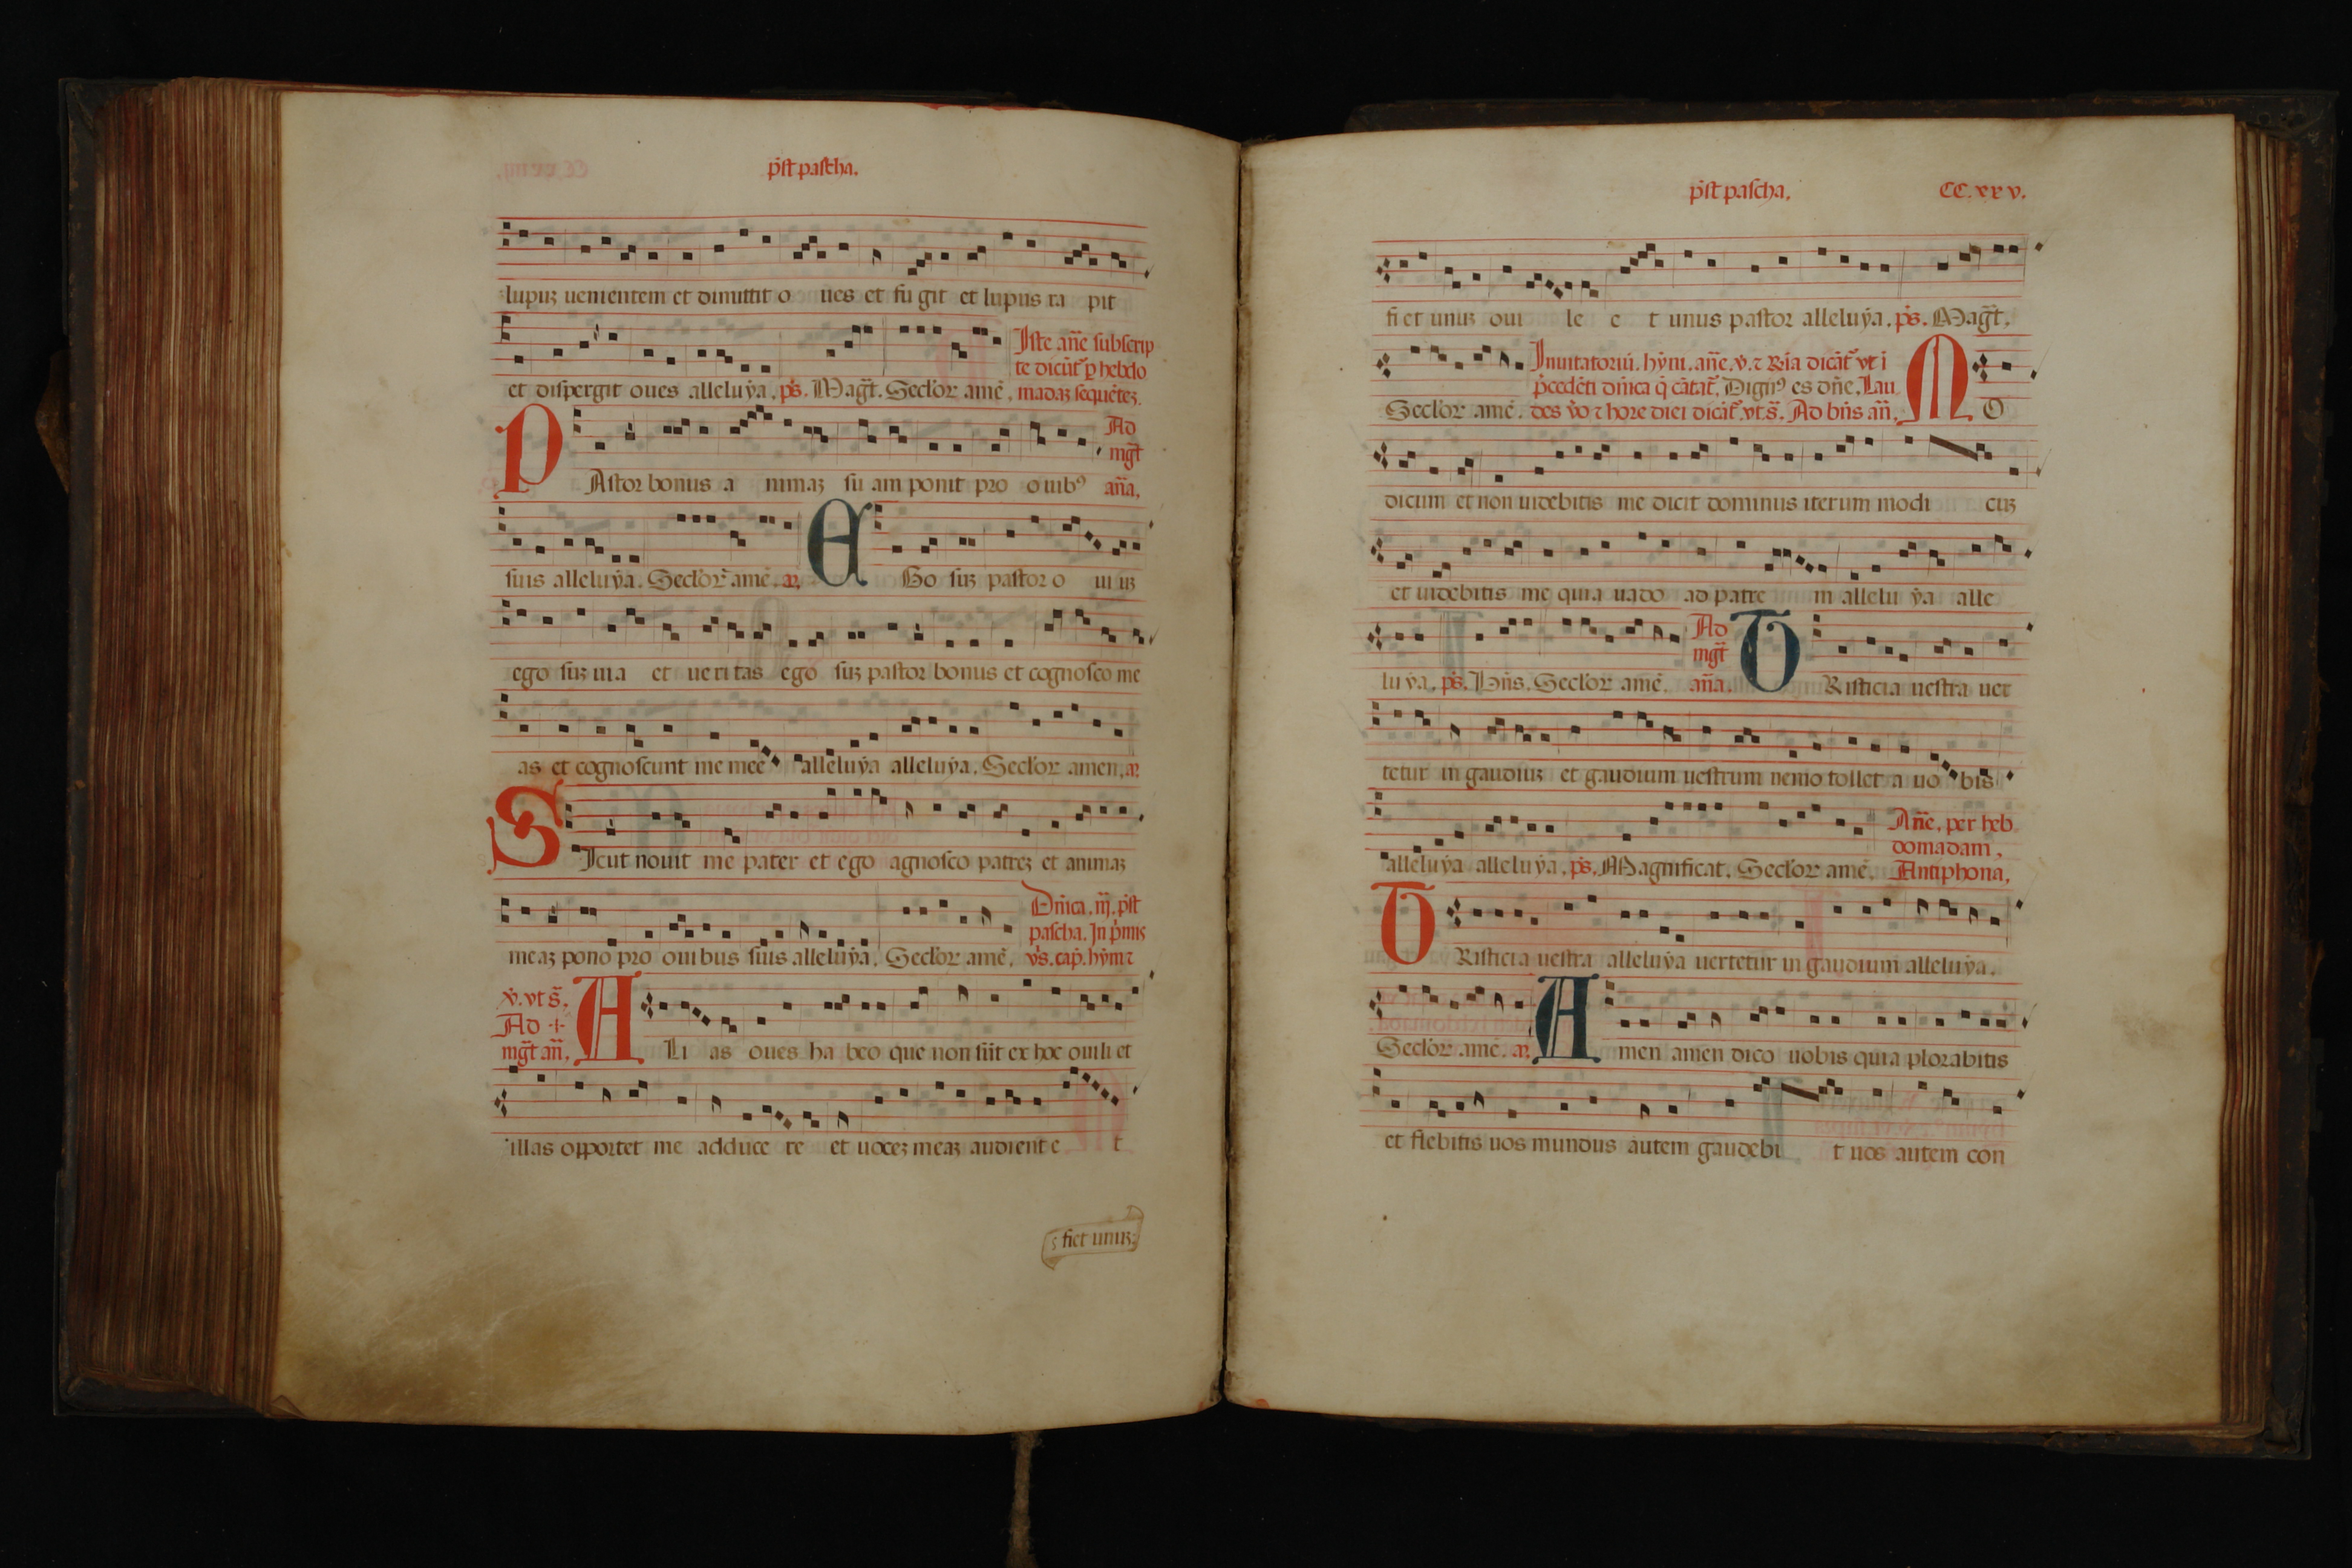 pt̄ pascha.
lupuʒ uenientem et dimittit o ues et fu git et lupus ra pit
et dispergit oues alleluẏa. ps̄. Mag̃t. Seclor amē.
Iste añe subscrip
te dicūt᷑ p̱ hebdo
madaʒ sequētez.
PAstor bonus a nimaʒ su am ponit pro ouibꝰ
Ad
mg̃t
aña.
suis alleluẏa. Seclor amē. añ.
EGo suʒ pastor o ui uʒ
ego suʒ uia et ueritas ego suʒ pastor bonus et cognosco me
as et cognoscunt me mee alleluẏa alleluẏa. Seclor amen. añ.
SIcut nouit me pater et ego agnosco patreʒ et animaʒ
meaʒ pono pro ouibus suis alleluẏa. Seclor amē.
Dñica. iij. pt̄
pascha. In p̄mis
vs̄. cap̄. hẏm̄ ⁊
v̇. vt s̄.
Ad
mg̃t añ.
ALi as oues ha beo que non sūt ex hoc ouili et
illas opportet me adduce re et uoceʒ meaʒ audient e t
⁊ fiet unuʒ:
pt̄ pascha.
CC. xxv.
fi et unuʒ oui le e t unus pastor alleluẏa. ps̄. Mag̃t.
Seclor amē.
Inuitatoriū. hẏm̄. añe. v̇. ⁊ Rīa dicāt᷑ vt i
p̄cedēti dñica q̄ cātat᷑. Dignꝰ es dñe. Lau
des v̇o ⁊ hore diei dicāt᷑. vt s̄. Ad bñs añ.
MO
dicum et non uidebitis me dicit dominus iterum modi cuʒ
et uidebitis me quia uado ad patre m allelu ẏa alle
luẏa. ps̄. Bñs. Seclor amē.
Ad
mg̃t
aña.
TRisticia uestra uer
tetur in gaudiuʒ et gaudium uestrum nemo tollet a uo bis
alleluẏa alleluẏa. ps̄. Magnificat. Seclor amē.
Añe. per heb
domadam.
Antiphona.
TRisticia uestra alleluẏa uertetur in gaudium alleluẏa.
Seclor amē. añ.
Amen amen dico uobis quia plorabitis
et flebitis uos mundus autem gaudebi t uos autem con